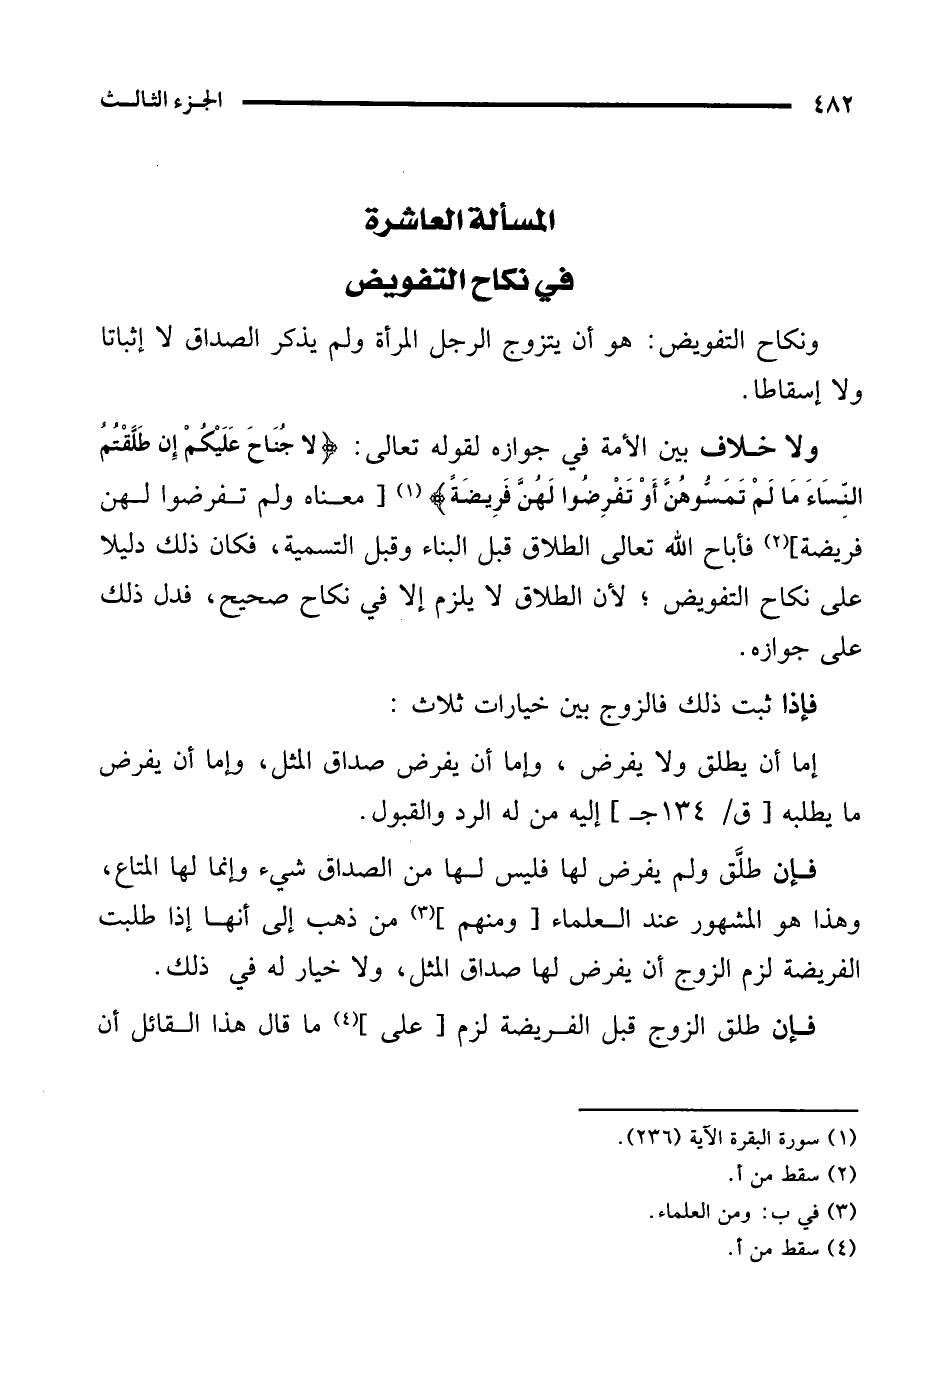 ٤٨٢ الجزء الثالث
المسألة العاشرة
في نكاح التفويض
ونكاح التفويض: هو أن يتزوج الرجل المرأة ولم يذكر الصداق لا إثباتا
ولا إسقاطا.
ولا خلاف بين الأمة في جوازه لقوله تعالى: ﴿لا جُنَاحَ عَلَيْكُمْ إِن طَلَّقْتُمُ
النِّسَاءَ مَا لَمْ تَمَسُّوهُنَّ أَوْ تَفْرِضُوا لَهُنَّ فَرِيضَةً﴾ (١) [ معناه ولم تفرضوا لهن
فريضة](٢) فأباح الله تعالى الطلاق قبل البناء وقبل التسمية، فكان ذلك دليلا
على نكاح التفويض ؛ لأن الطلاق لا يلزم إلا في نكاح صحيح، فدل ذلك
على جوازه.
فإذا ثبت ذلك فالزوج بين خيارات ثلاث :
إما أن يطلق ولا يفرض ، وإما أن يفرض صداق المثل، وإما أن يفرض
ما يطلبه [ ق/ ١٣٤جـ ] إليه من له الرد والقبول.
فإن طلَّق ولم يفرض لها فليس لها من الصداق شيء وإنما لها المتاع،
وهذا هو المشهور عند العلماء [ ومنهم ](٣) من ذهب إلى أنها إذا طلبت
الفريضة لزم الزوج أن يفرض لها صداق المثل، ولا خيار له في ذلك.
فإن طلق الزوج قبل الفريضة لزم [ على ](٤) ما قال هذا القائل أن
(١) سورة البقرة الآية (٢٣٦).
(٢) سقط من أ.
(٣) في ب: ومن العلماء.
(٤) سقط من أ.